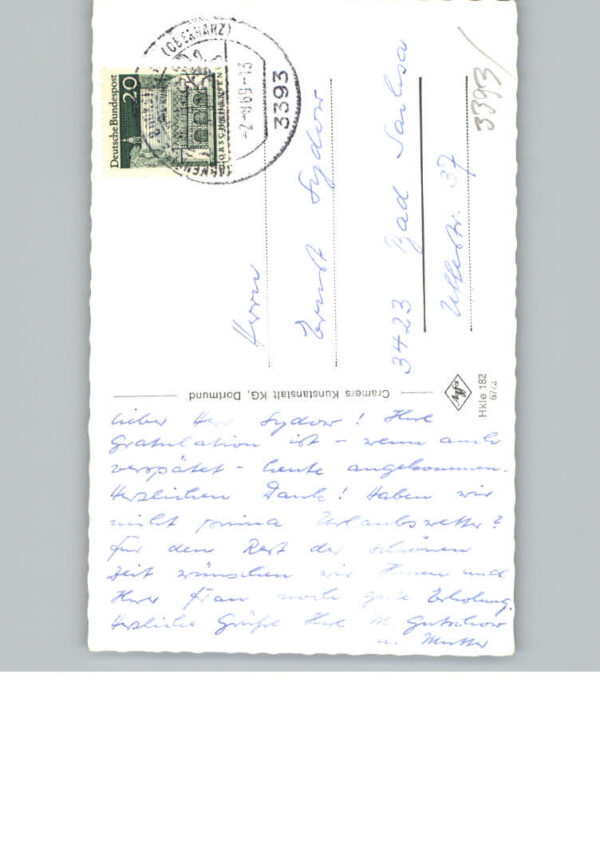 Lieber Herr Sydow! Ihre
Gratulation ist - wenn auch
verspätet - heute angekommen.
Herzlichen Dank! Haben wir
nicht prima Urlaubswetter?
Für den Rest der schönen
Zeit wünschen wir Ihnen und
Ihrer Frau noch gute Erholung.
Herzliche Grüße Ihre M. Gutschow
u. Mutter
Cramers Kunstanstalt KG, Dortmund
Hkle 182
Herrn
Ernst Sydow
3423 Bad Sachsa
37
3393
Deutsche Bundespost
20
(OBERHARZ)
3393